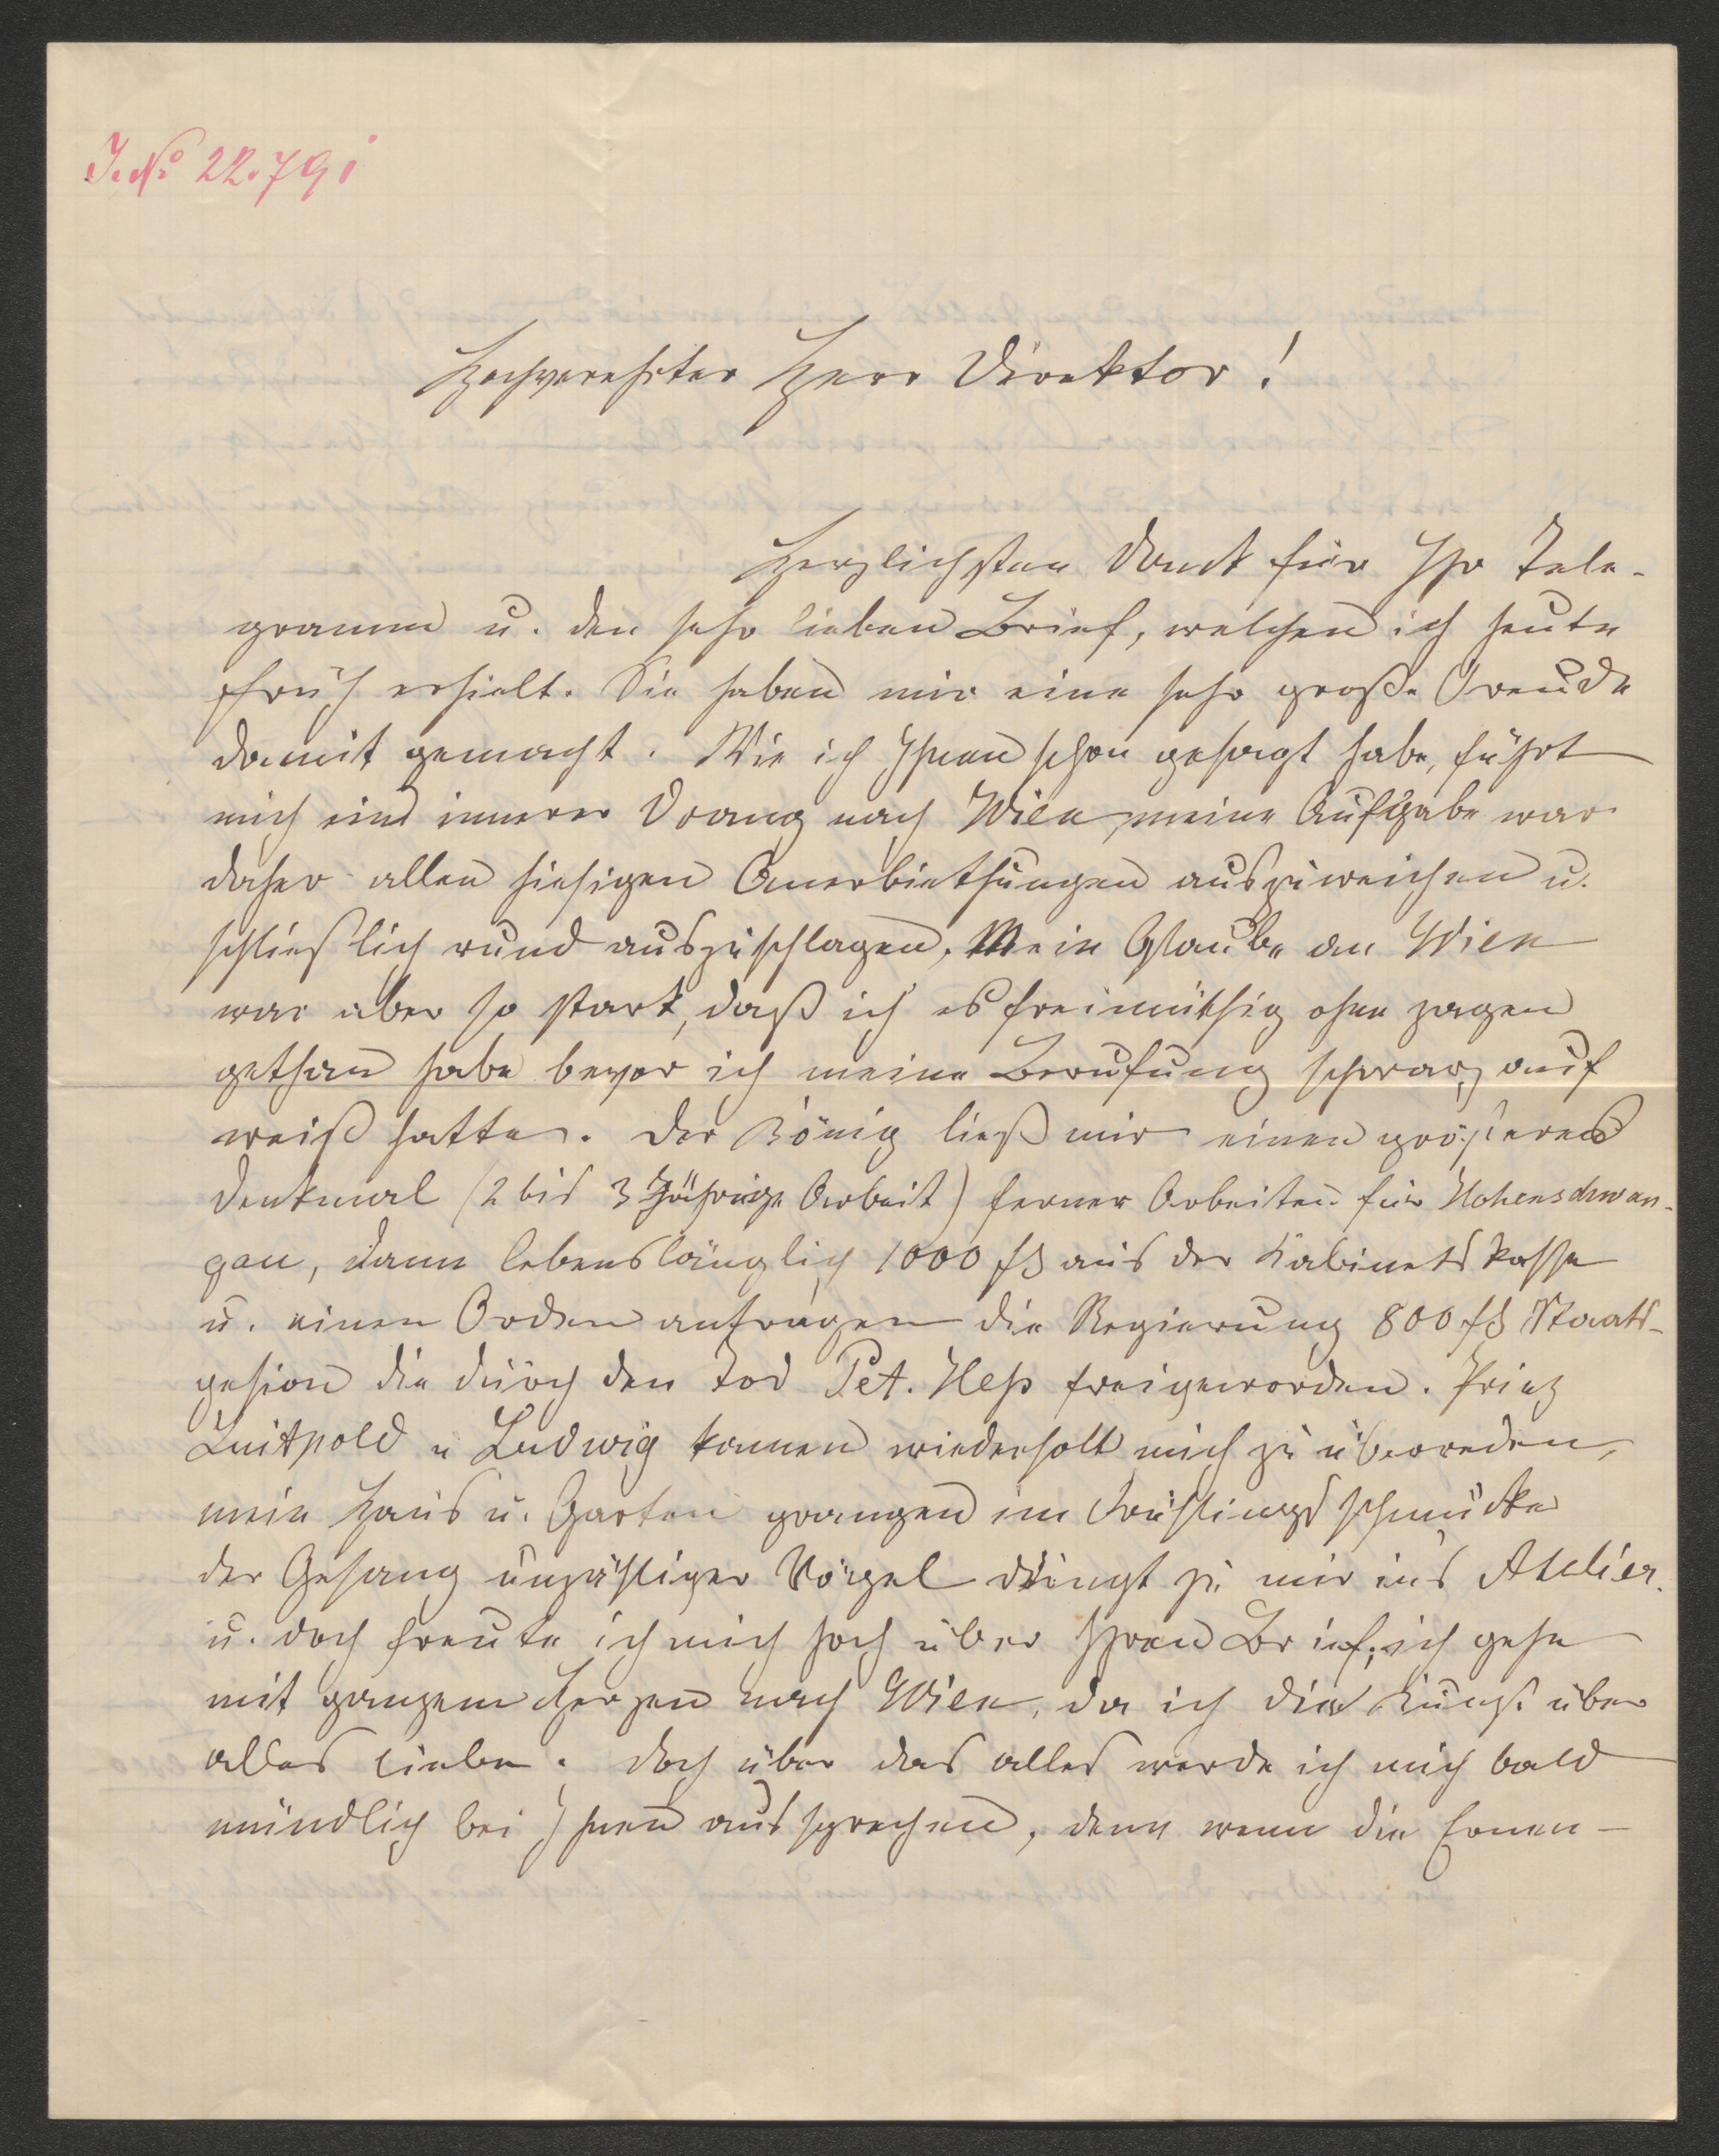 J. No 22.791
Hochverehrter Herr Direktor!
Herzlichsten Dank für Ihr Tele-
gramm u. den sehr lieben Brief, welchen ich heute
früh erhielt. Sie haben mir eine sehr große Freude
damit gemacht. Wie ich Ihnen schon gesagt habe, führt
mich ein innerer Drang nach Wien, meine Aufgabe war
daher allen hiesigen Anerbiethungen auszuweichen u.
schließlich rund auszuschlagen. Mein Glaube an Wien
war aber so stark, daß ich es freimüthig ohne zagen
gethan habe bevor ich meine Berufung schwarz auf
weiß hatte. Der König ließ mir einen größeres
Denkmal (2 bis 3 Jährige Arbeit) ferner Arbeiten für Hohenschwan-
gau, dann lebenslänglich 1000 fl aus der Kabinetskasse
u. einen Orden antragen die Regierung 800 fl Staats-
pesion die durch den Tod Pet. Hess freigeworden. Prinz
Luitpold u Ludwig kamen wiederholt mich zu überreden,
mein Haus u. Garten prangen im Frühlingsschmucke
der Gesang unzähliger Vögel dringt zu mir ins Atelier.
u. doch freute ich mich hoch über Ihren Brief; ich gehe
mit ganzem Herzen nach Wien, da ich die Kunst über
alles liebe. Doch über das alles werde ich mich bald
mündlich bei Ihnen aussprechen, denn wenn die Ernen-